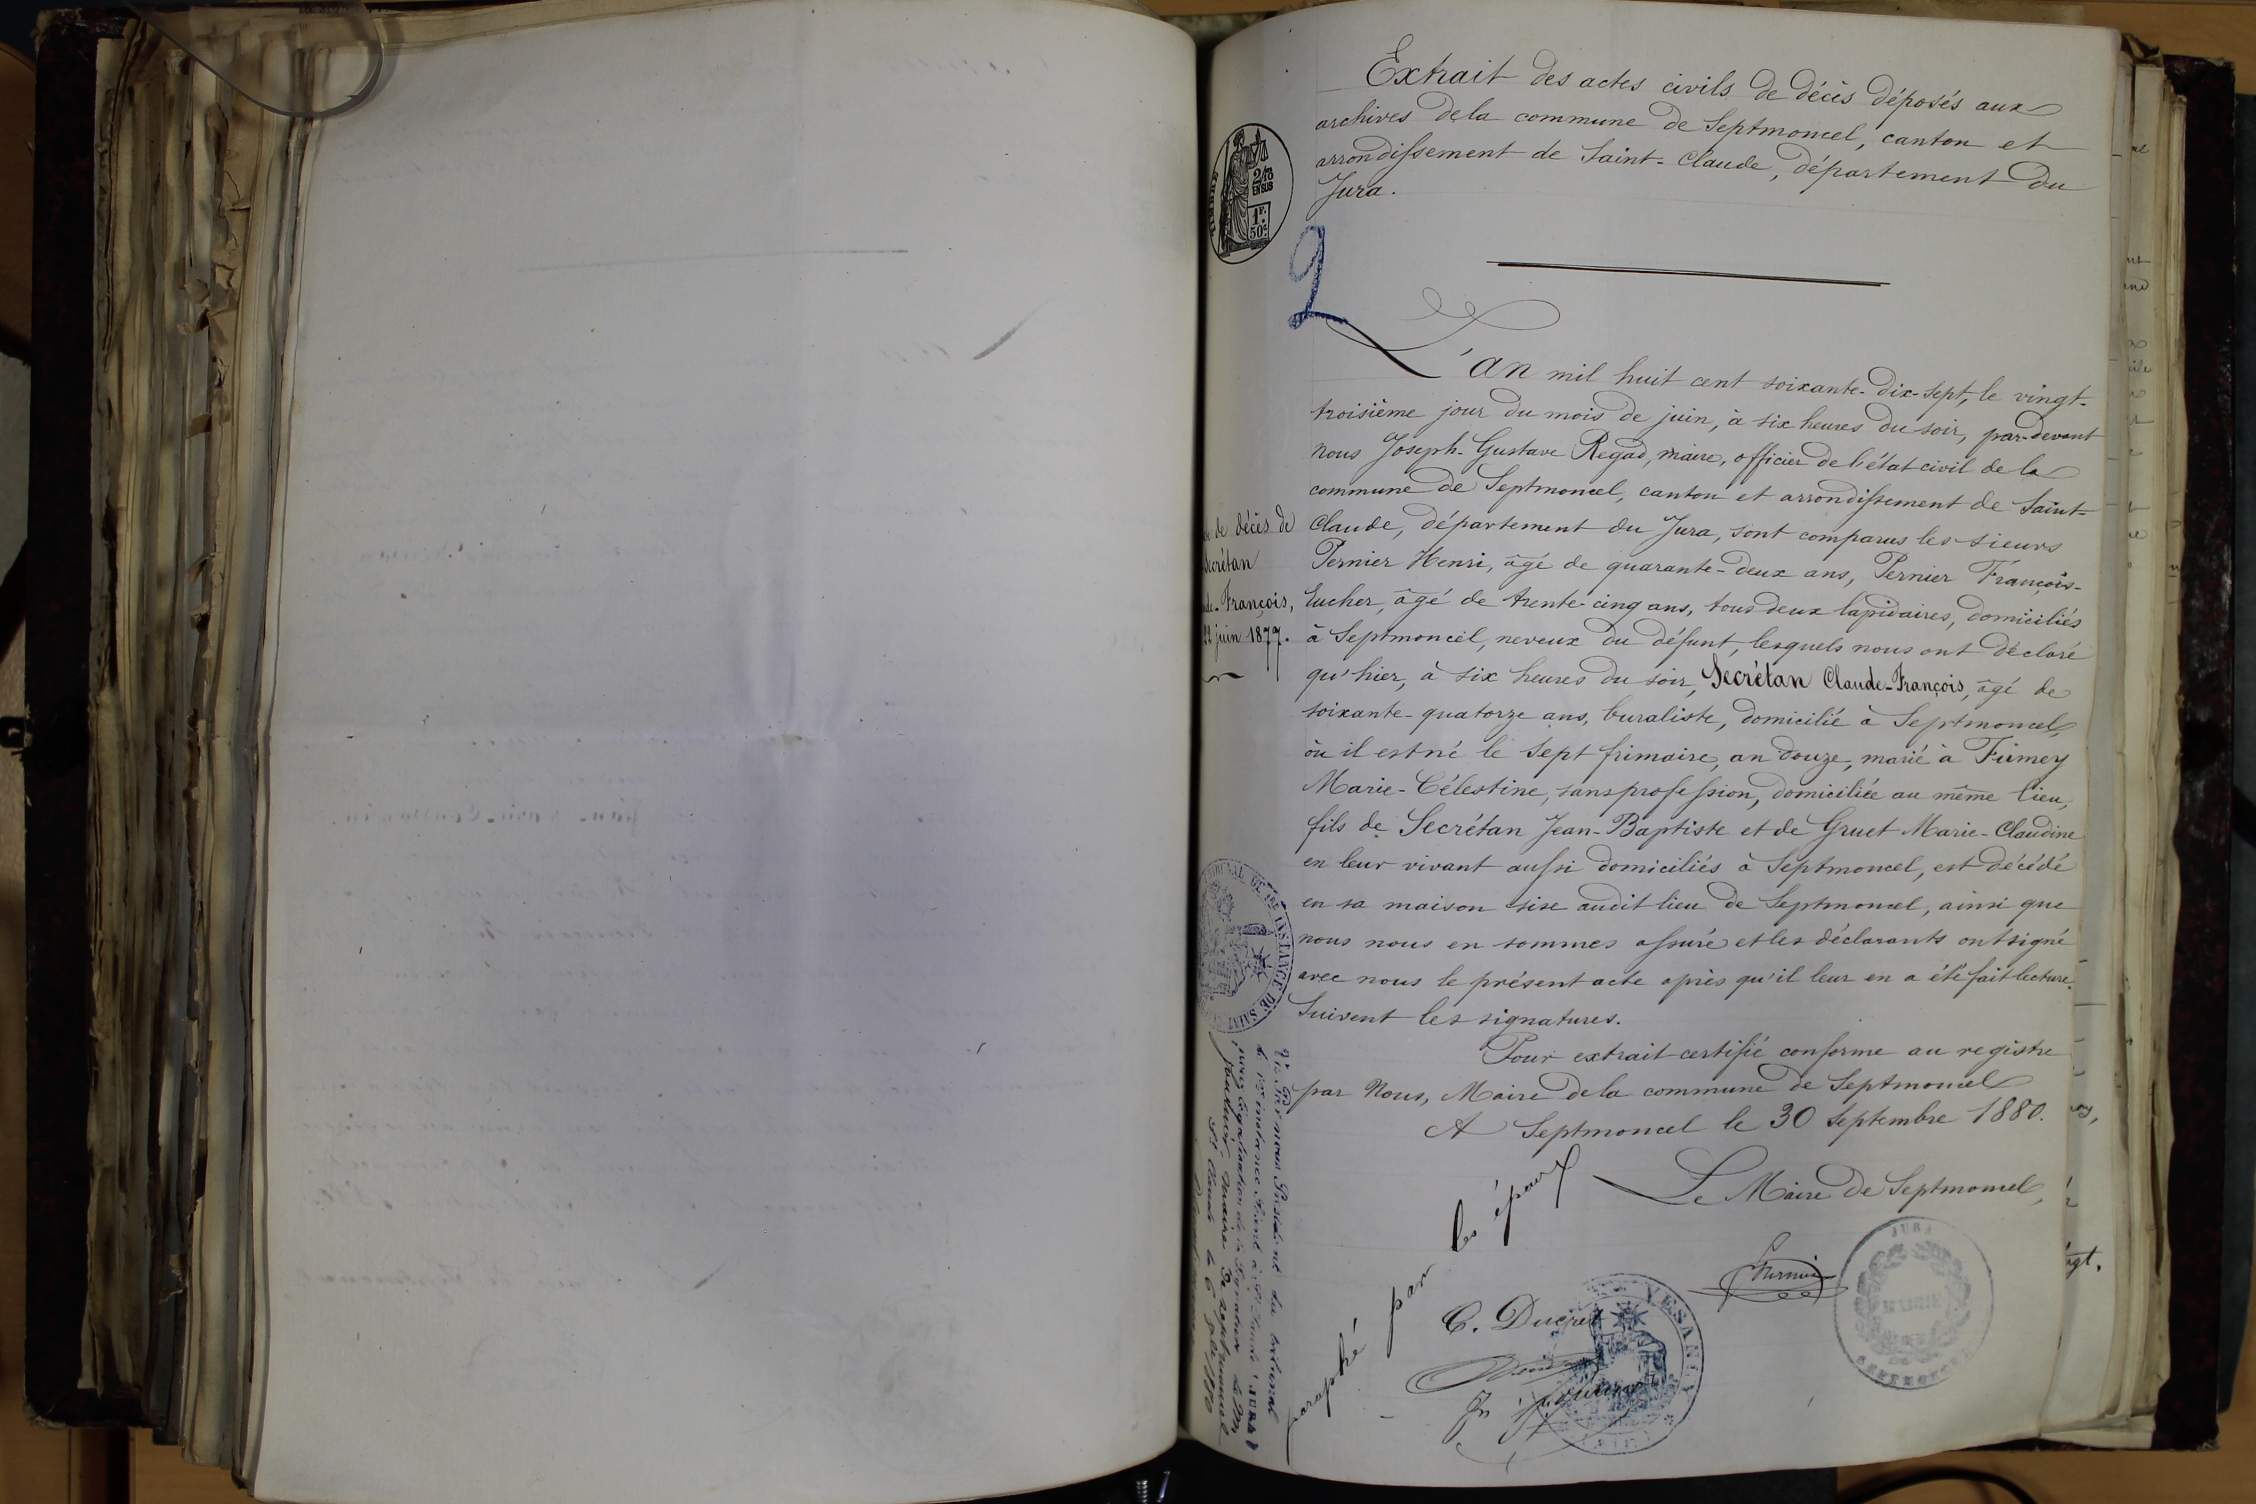 Extrait des actes civils de décès déposés aux
archives de la commune de Septmoncel, canton et
arrondissement de Saint-Claude, département du
Jura.
2/10
EN SUS
1F.
50c.
2
L'an mil huit cent soixante-dix-sept, le vingt-
troisième jour du mois de juin, à six heures du soir, par-devant
nous Joseph-Gustave Regad, maire, officier de l'état civil de la
commune de Septmoncel, canton et arrondissement de Saint-
Claude, département du Jura, sont comparus les sieurs
Pernier Henri, âgé de quarante-deux ans, Pernier François-
Eucher, âgé de trente-cinq ans, tous deux lapidaires, domiciliés
à Septmoncel, neveux du défunt, lesquels nous ont déclaré
qu'hier, à six heures du soir, Secrétan Claude-François, âgé de
soixante-quatorze ans, buraliste, domicilié à Septmoncel,
où il est né le sept frimaire, an douze, marié à Fumey
Marie-Célestine, sans profession, domiciliée au même lieu,
fils de Secrétan Jean-Baptiste et de Gruet Marie-Claudine
en leur vivant aussi domiciliés à Septmoncel, est décédé
en sa maison sise audit lieu de Septmoncel, ainsi que
nous nous en sommes assuré et les déclarants ont signé
avec nous le présent acte après qu'il leur en a été fait lecture.
Suivent les signatures.
Pour extrait certifié conforme au registre
par Nous, Maire de la commune de Septmoncel
A Septmoncel le 30 Septembre 1880.
Le Maire de Septmoncel,
de décès de
Secrétan
François,
22 juin 1877.
TRIBUNAL DE 1RE INSTANCE DE SAINT
Président du tribunal
de 1ère instance séant à St Claude (JURA)
pour légalisation de la signature de M.
maire de Septmoncel
St Claude le 6 1880
paraphé par les époux
C. Ducret
JURA
MAIRIE